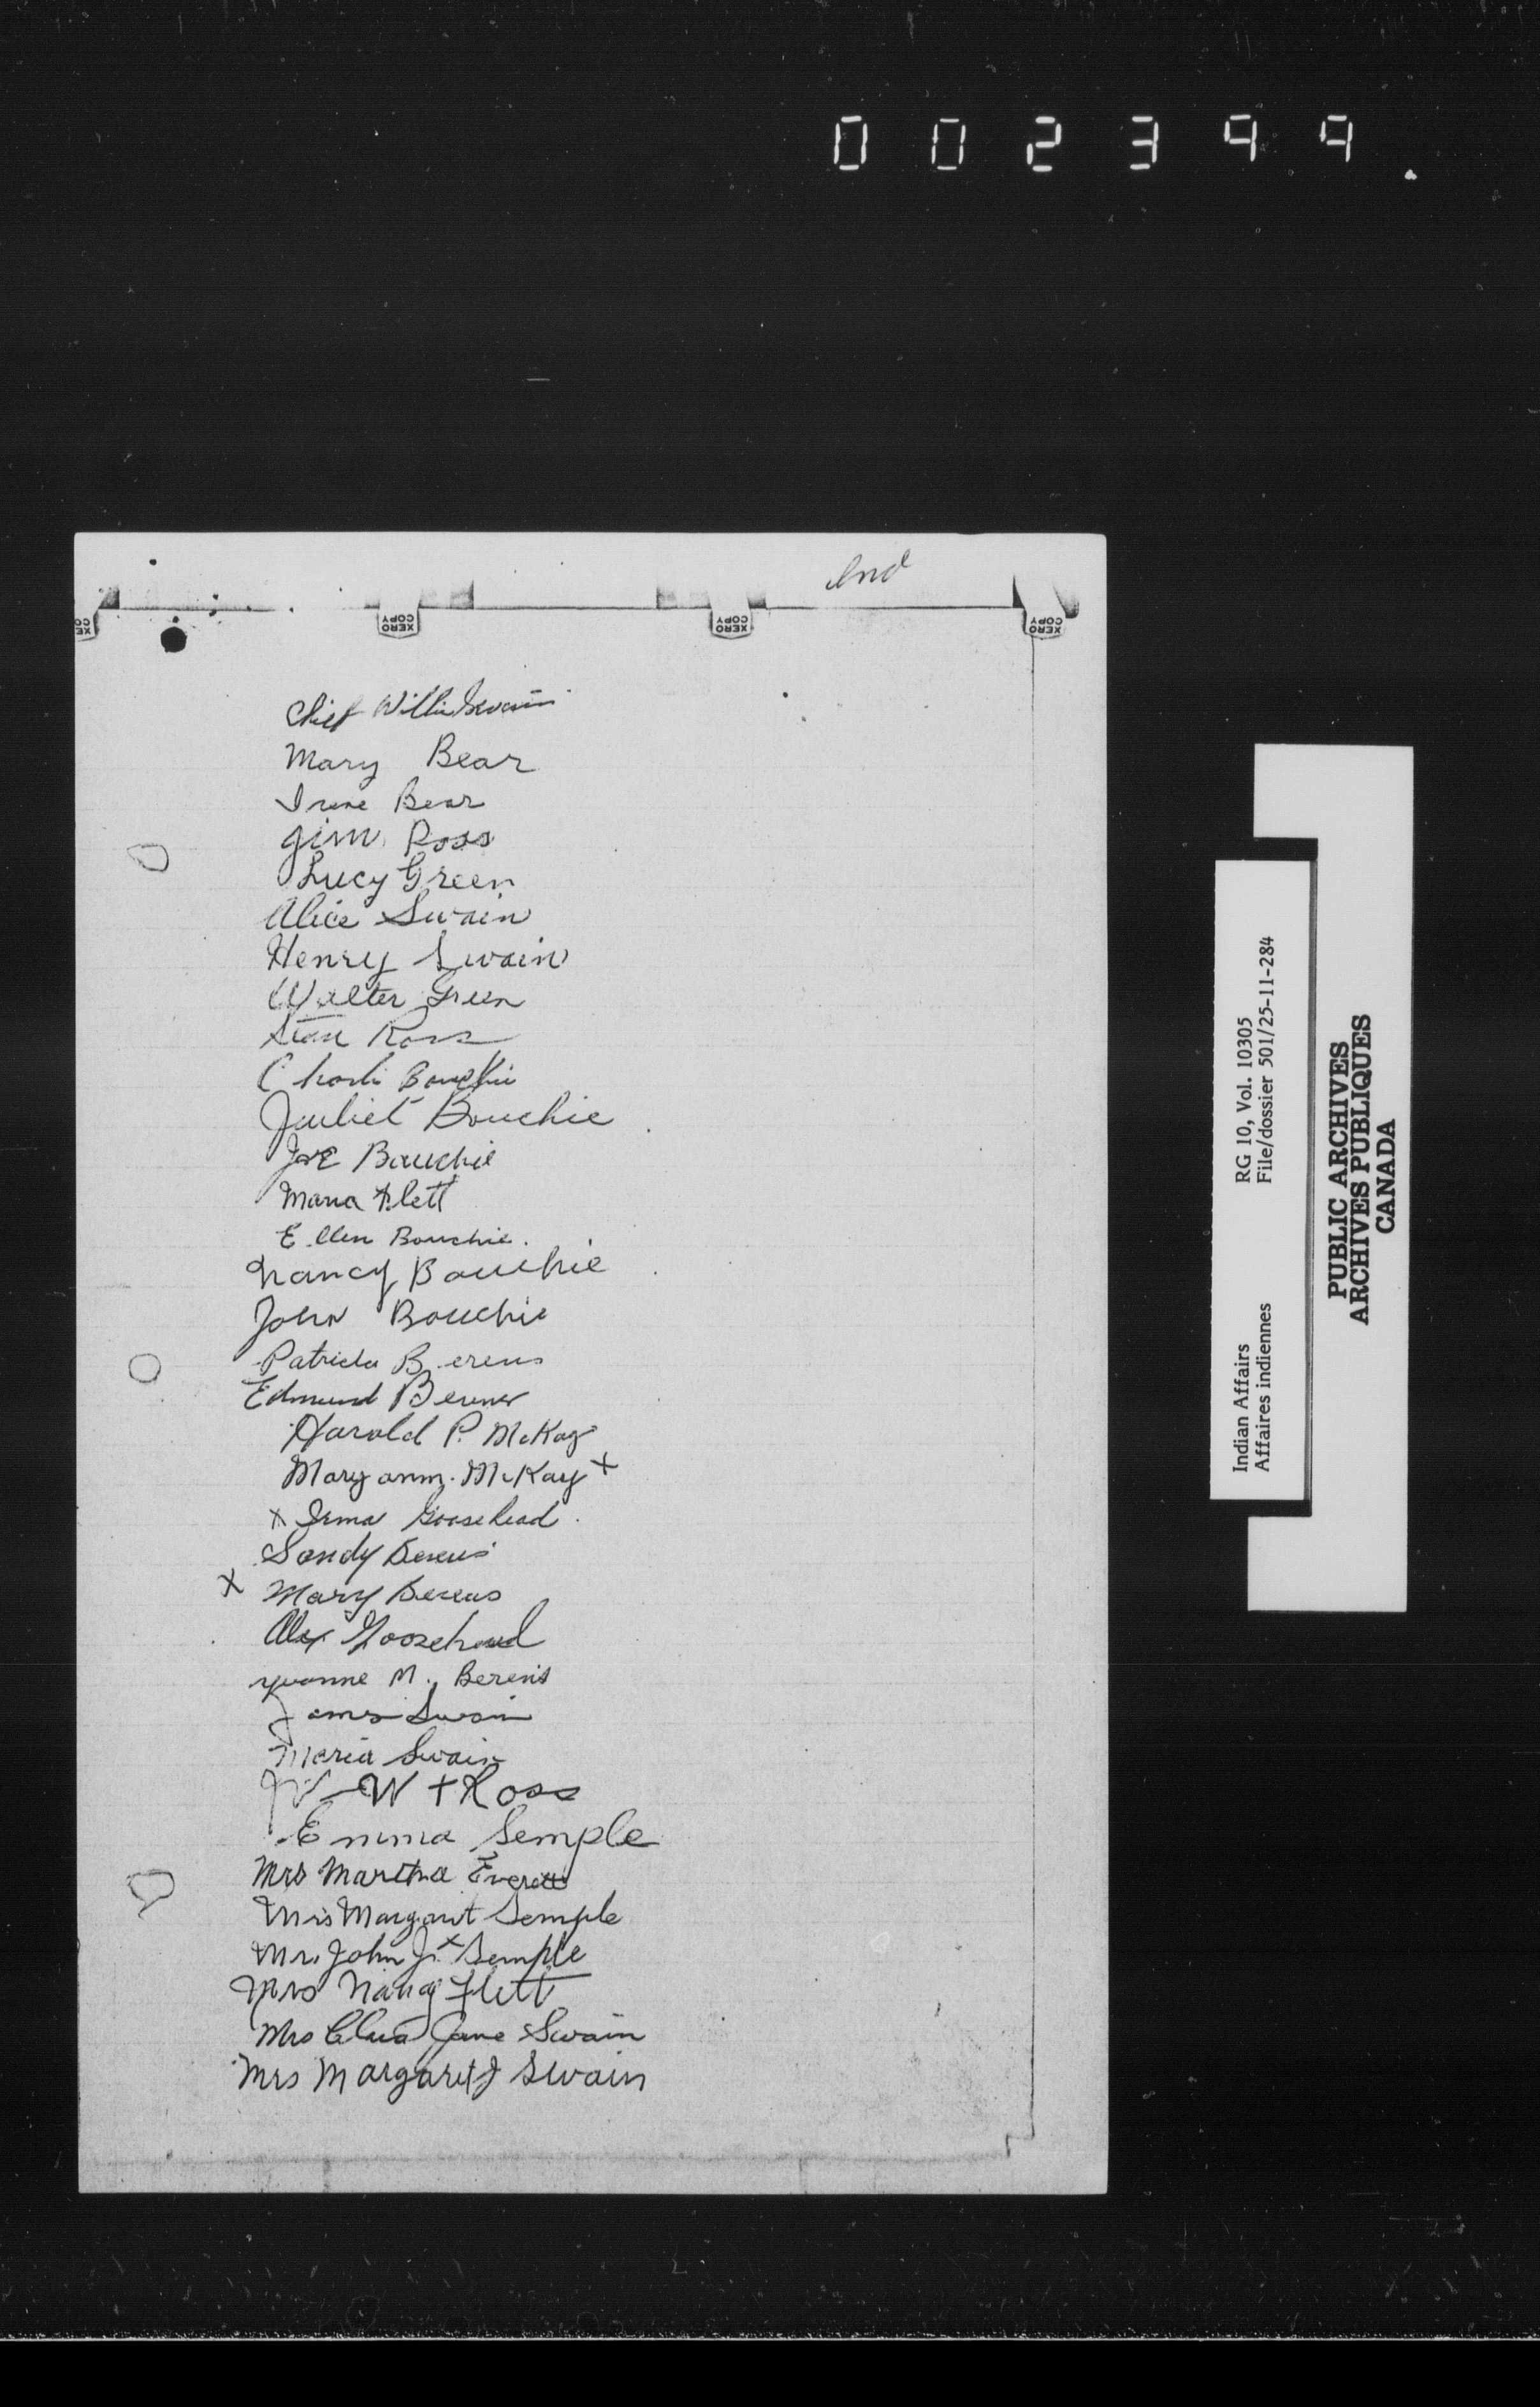 002399.
XERO COPY
XERO COPY
XERO COPY
Chief Willie Swain
Mary Bear
Irene Bear
Jim Ross
Lucy Green
Alice Swain
Henry Swain
Walter Green
Stan Ross
Charli Bouchie
Juliet Bouchie
Joe Bouchie
Maria Flett
Ellen Bouchie.
Nancy Bouchie
John Bouchie
Patricia Berens
Edmund Berens
Harold P. McKay
Mary ann. McKay x
x Irma Goosehead.
Sandy Berens
x Mary Berens
Alex Goosehead
Yvonne M. Berens
James Swain
Maria Swain
W + Ross
Emma Semple
Mrs Martha Everett
Mrs Margaret Semple
Mr. John Jr. x Semple
Mrs Nancy Flett
Mrs Jane Swain
Mrs Margaret J Swain
Indian Affairs RG 10, Vol. 10305
Affaires indiennes File/dossier 501/25-11-284
PUBLIC ARCHIVES
ARCHIVES PUBLIQUES
CANADA